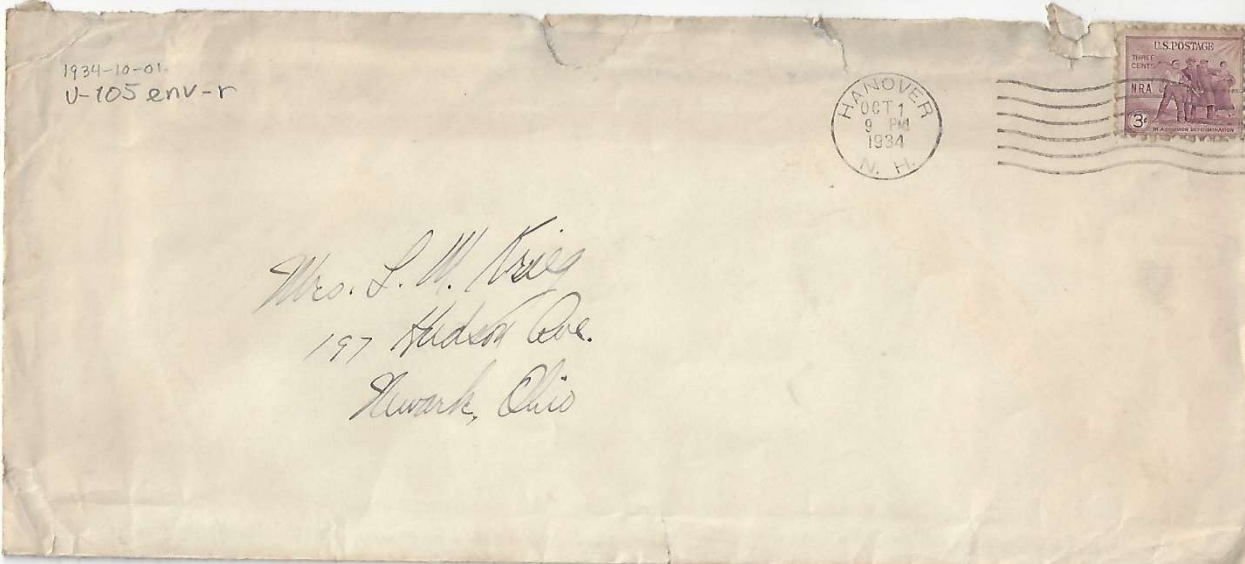 1934-10-01
U-105 env-r
HANOVER
OCT 1
9 PM
1934
N. H.
U.S. POSTAGE
THREE
CENTS
NRA
3¢
IN A COMMON DETERMINATION
Mrs. L. W. Krieg
197 Hudson Ave.
Newark, Ohio